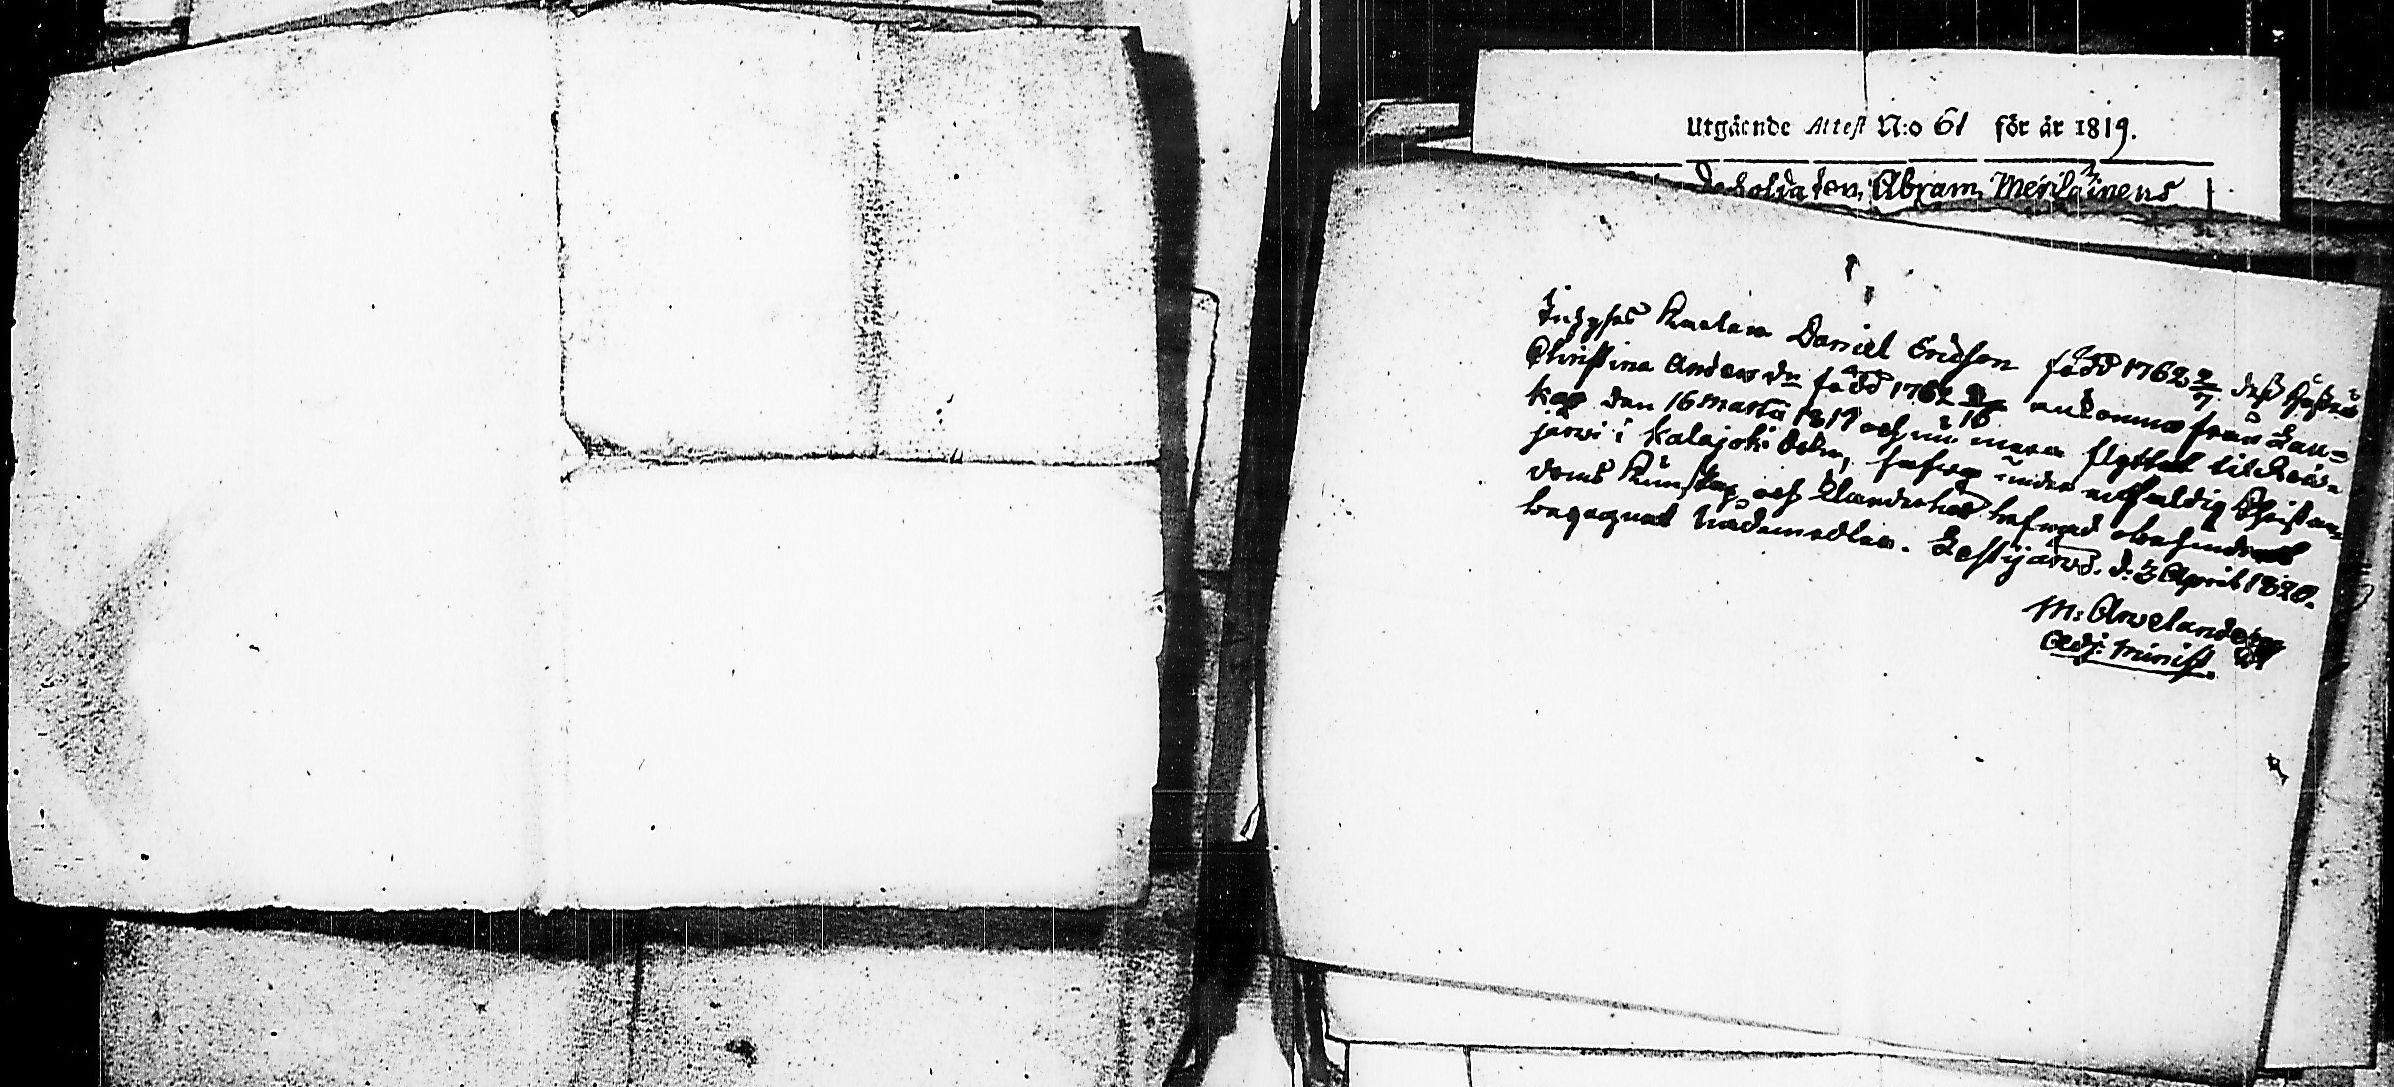 Utgående Attest N:o 61 för år 1819.
Soldaten Abram Meriläinens
Inhyses Karlen Daniel Ericson född 1762 2/7 dess Hustru
Christina Anders dr född 1762 9/16 ankomne från Lau=
kas den 16 Martii 1819 och nu mera flyttat til
järwi i Kalajoki Sokn, hafwa under enfaldig Christen=
doms Kunskap och lefnad obehindrat
begagnat Nådemedlen. Lestijärwi d. 3 April 1820.
M: Arwelander
Adj: minist.